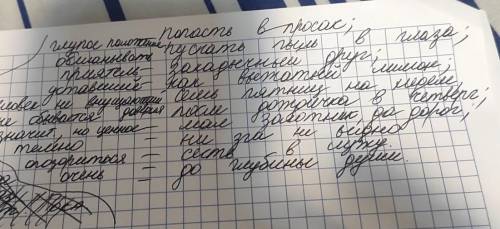 глупое положение – попасть в просак;
обманывать – пускать пыль в глаза;
приятель – закадычный друг;
уставший – как выжатый лимон;
человек не внушающий доверия – семь пятниц на неделе;
не сбывается – после дождичка в четверг;
значит, но ценное – мал золотник, да дорог;
темно – ни зги не видно
опозориться – сесть в лужу
очень – до глубины души.